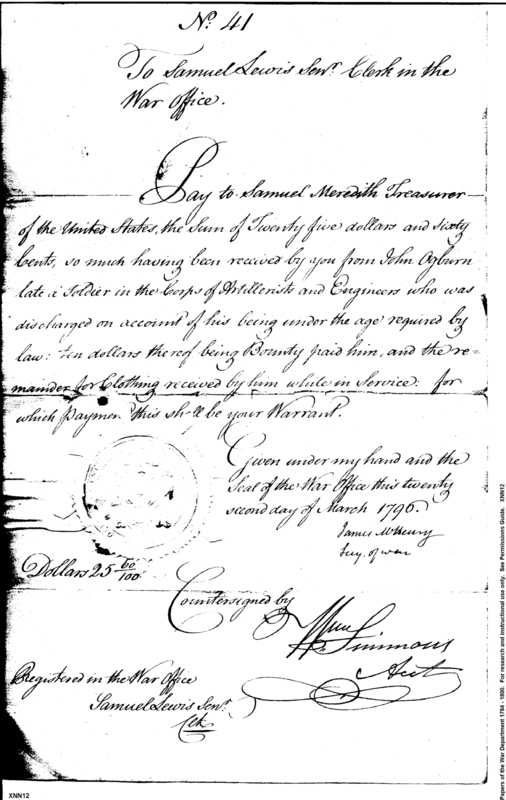 No. 41
To Samuel Lewis Senr. Clerk in the
War Office.
Pay to Samuel Meredith Treasurer
of the United States, the Sum of Twenty five dollars and sixty
Cents, so much having been received by you from John Ogburn
late a Soldier in the Corps of Artillerists and Engineers who was
discharged on account of his being under the age required by
law: ten dollars thereof being Bounty paid him, and the re-
mainder for Clothing received by him while in Service: for
which paymen this shall be your Warrant.
Given under my hand and the
Seal of the War Office this twenty
second day of March 1796.
James McHenry
Secy. of war
Dollars 25 60/100
Countersigned by
Wm Simmons
Acct
Registered in the War Office
Samuel Lewis Senr.
Clk
XNN12
Papers of the War Department 1784 - 1800. For research and instructional use only. See Permissions Guide. XNN12